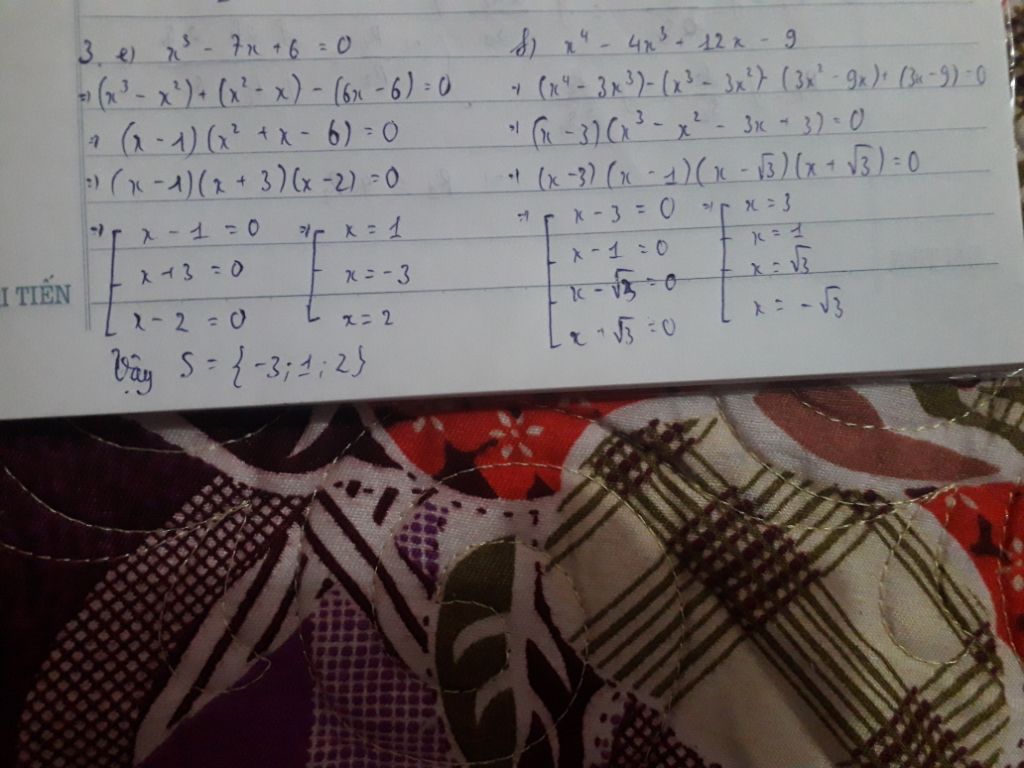 3. e) x³ - 7x + 6 = 0
=> (x³ - x²) + (x² - x) - (6x - 6) = 0
=> (x - 1)(x² + x - 6) = 0
=> (x - 1)(x + 3)(x - 2) = 0
=> [ x - 1 = 0 => [ x = 1
x + 3 = 0 x = -3
x - 2 = 0 x = 2
Vậy S = {-3; 1; 2}
f) x⁴ - 4x³ + 12x - 9
=> (x⁴ - 3x³) - (x³ - 3x²) - (3x² - 9x) + (3x - 9) = 0
=> (x - 3)(x³ - x² - 3x + 3) = 0
=> (x - 3)(x - 1)(x - √3)(x + √3) = 0
=> [ x - 3 = 0 => [ x = 3
x - 1 = 0 x = 1
x - √3 = 0 x = √3
x + √3 = 0 x = -√3
I TIẾN